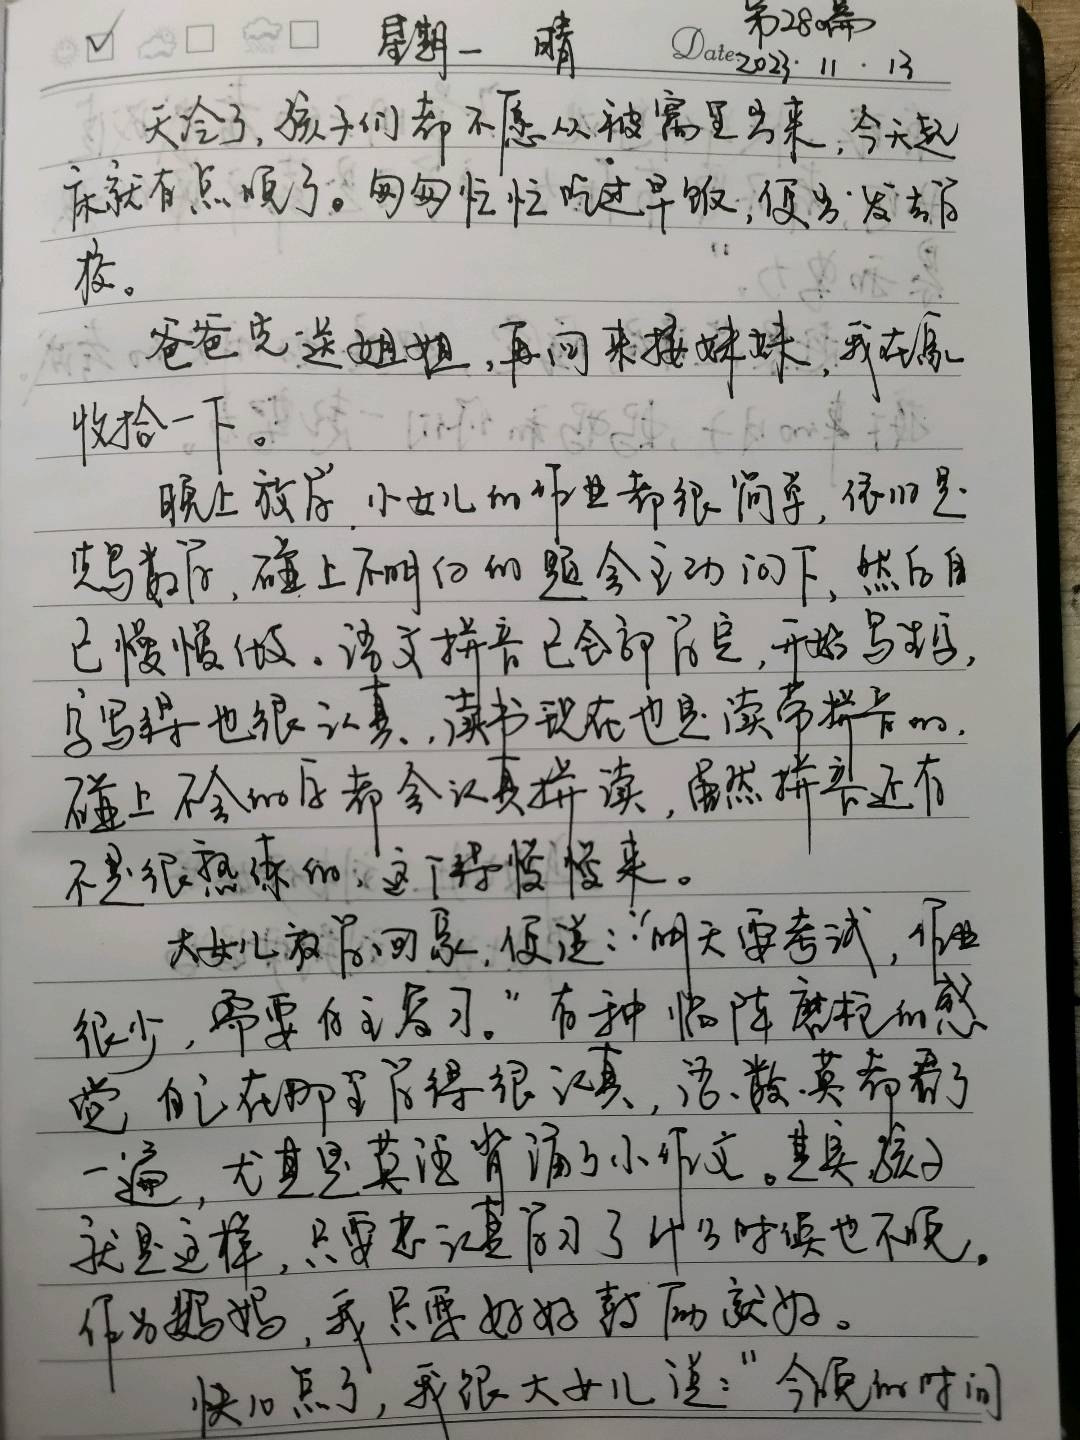 第280篇
星期一 晴 Date: 2023.11.13
天冷了,孩子们都不愿从被窝里出来,今天起
床就有点晚了。匆匆忙忙吃过早饭,便出发去学
校。
爸爸先送姐姐,再回来接妹妹,我在家
收拾一下。
晚上放学,小女儿的作业都很简单,依旧是
先写数学,碰上不明白的题会主动问下,然后自
己慢慢做。语文拼音已全部学完,开始写生字,
字写得也很认真,读书现在也是读带拼音的,
碰上不会的字都会认真拼读,虽然拼音还有
不是很熟练的,这个得慢慢来。
大女儿放学回家,便说:“明天要考试,作业
很少,需要自主复习。”有种临阵磨枪的感
觉,自己在那里学得很认真,语、数、英都看了
一遍,尤其是英语背诵了小作文。其实孩子
就是这样,只要想认真学习了什么时候也不晚。
作为妈妈,我只要好好鼓励就好。
快10点了,我跟大女儿说:“今晚的时间